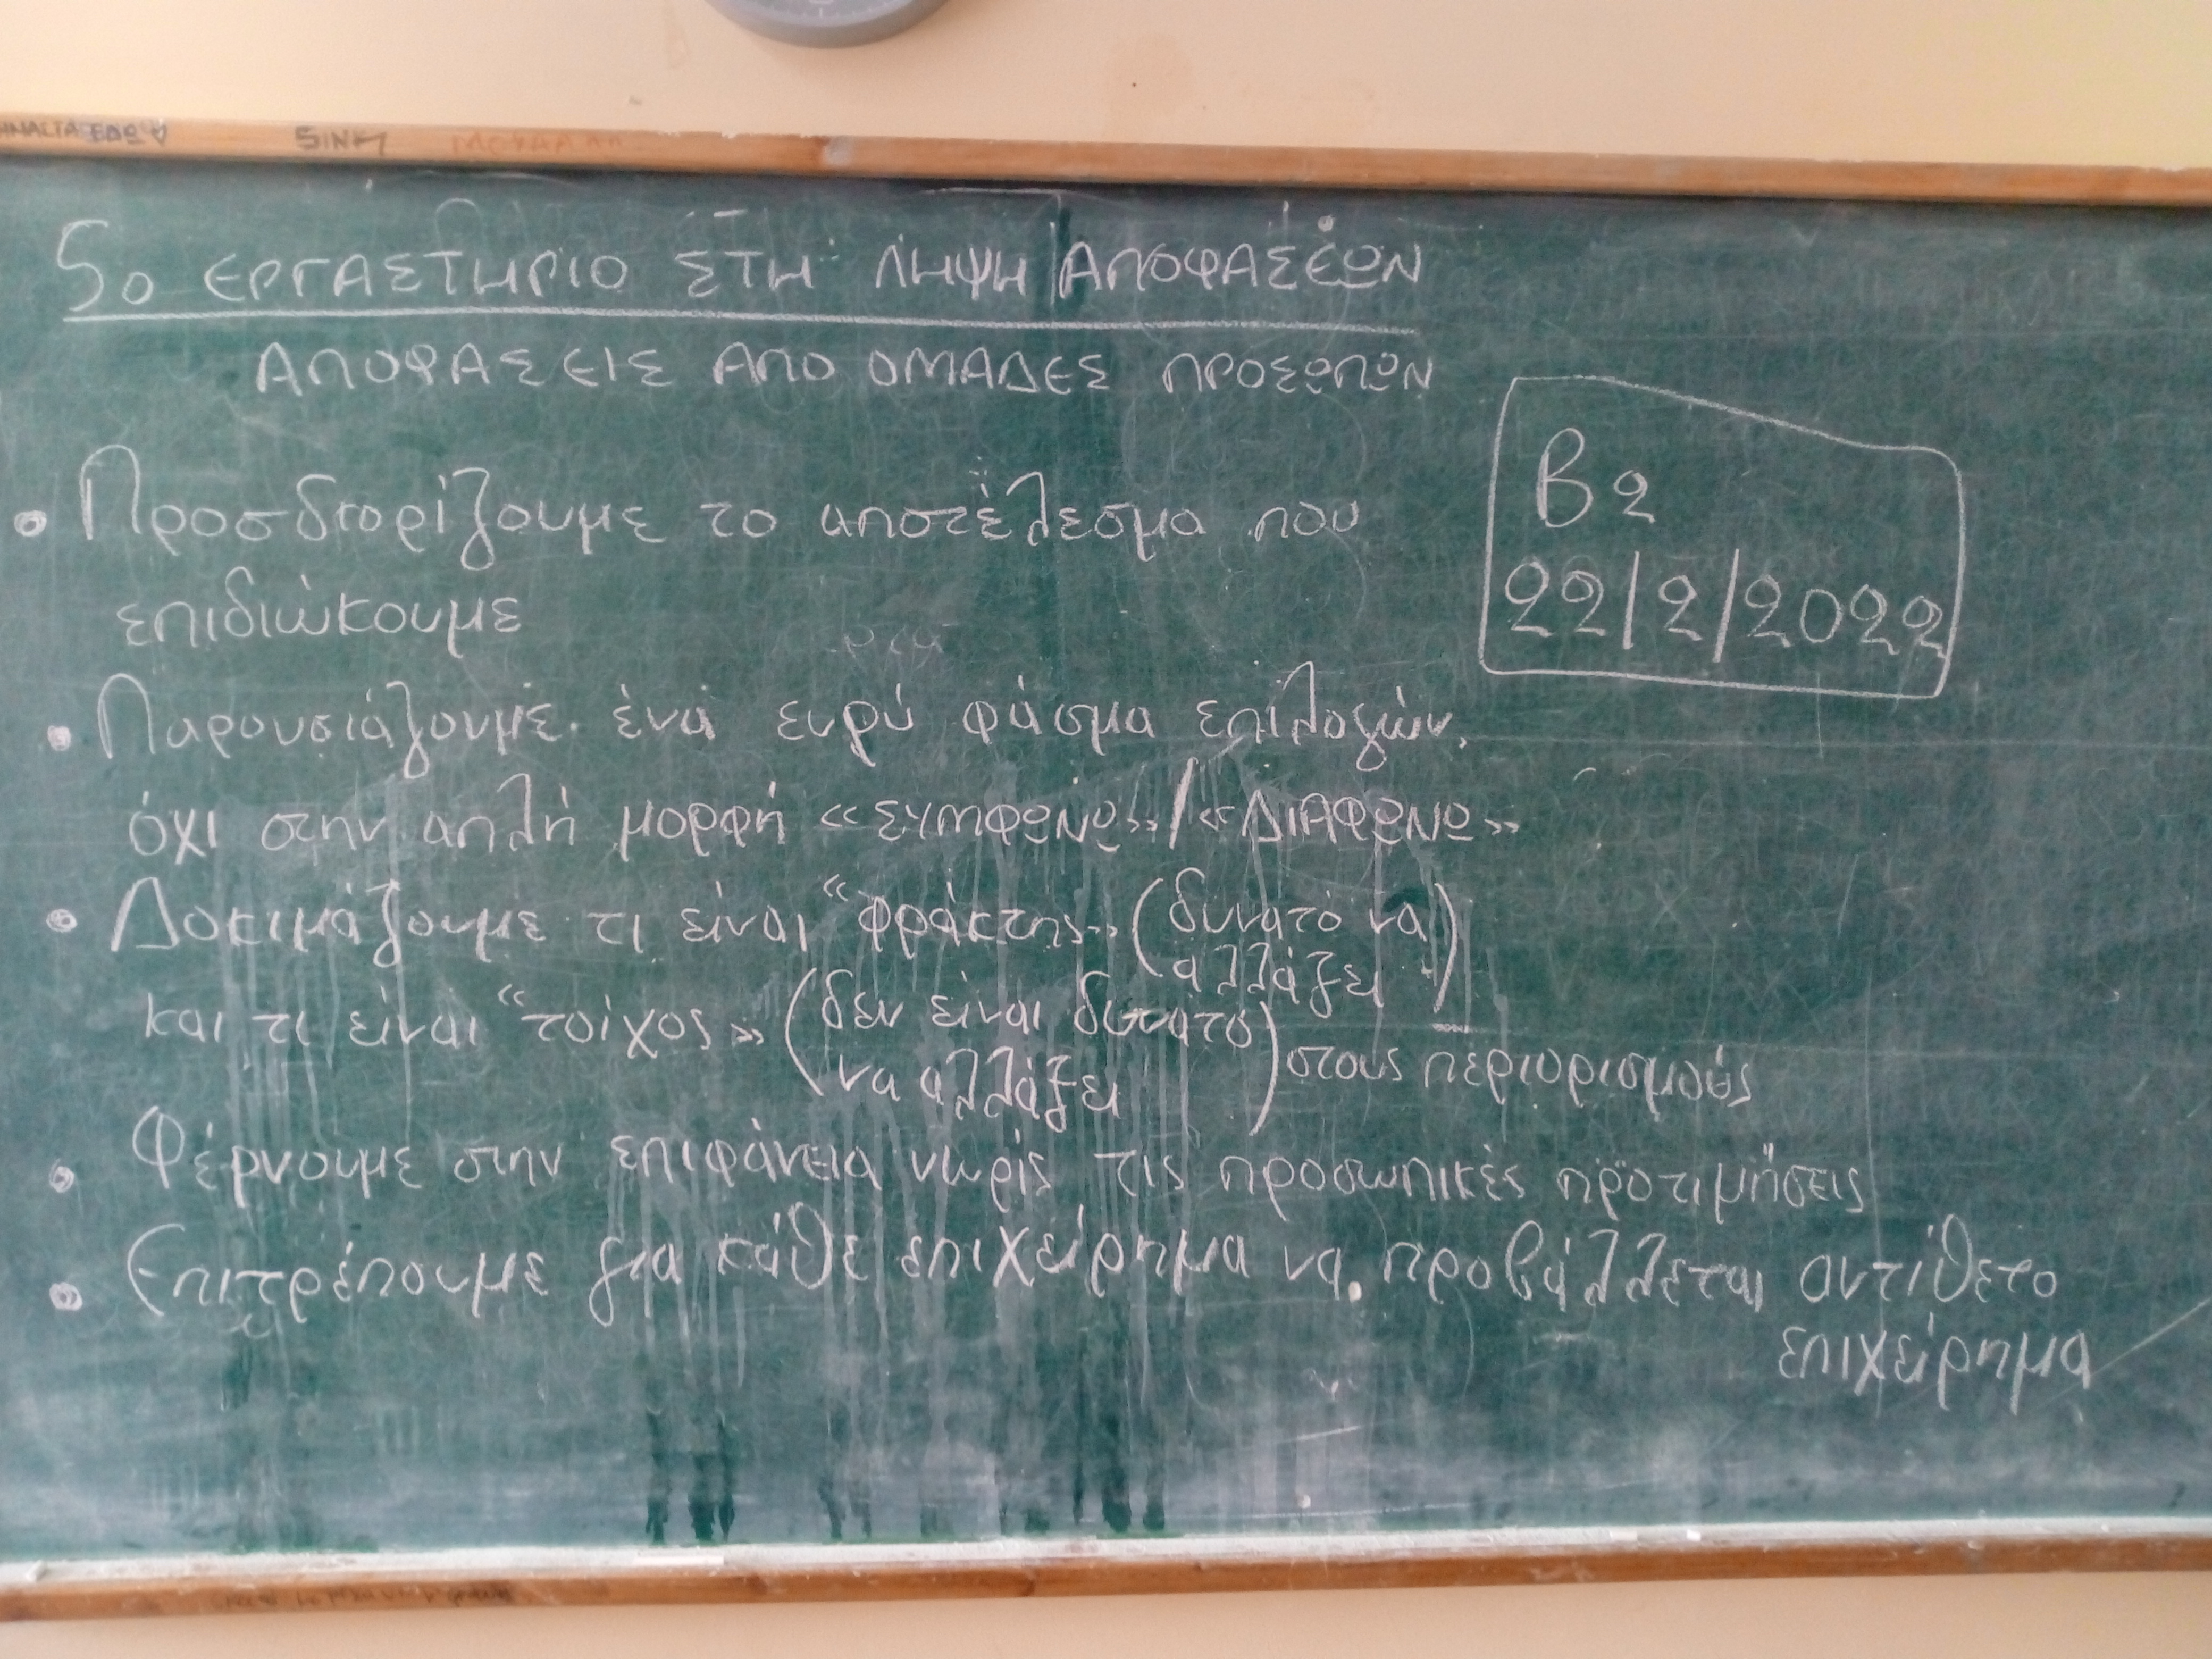 ΕΔΩ
SINK
5ο ΕΡΓΑΣΤΗΡΙΟ ΣΤΗ ΛΗΨΗ ΑΠΟΦΑΣΕΩΝ
ΑΠΟΦΑΣΕΙΣ ΑΠΟ ΟΜΑΔΕΣ ΠΡΟΣΩΠΩΝ
• Προσδιορίζουμε το αποτέλεσμα που
επιδιώκουμε
Β2
22/2/2022
• Παρουσιάζουμε ένα ευρύ φάσμα επιλογών,
όχι στην απλή μορφή «ΣΥΜΦΩΝΩ»/«ΔΙΑΦΩΝΩ»
• Δοκιμάζουμε τι είναι «φράκτης» (δυνατό να
αλλάξει)
και τι είναι «τοίχος» (δεν είναι δυνατό
να αλλάξει) στους περιορισμούς
• Φέρνουμε στην επιφάνεια νωρίς τις προσωπικές προτιμήσεις
• Επιτρέπουμε για κάθε επιχείρημα να προβάλλεται αντίθετο
επιχείρημα